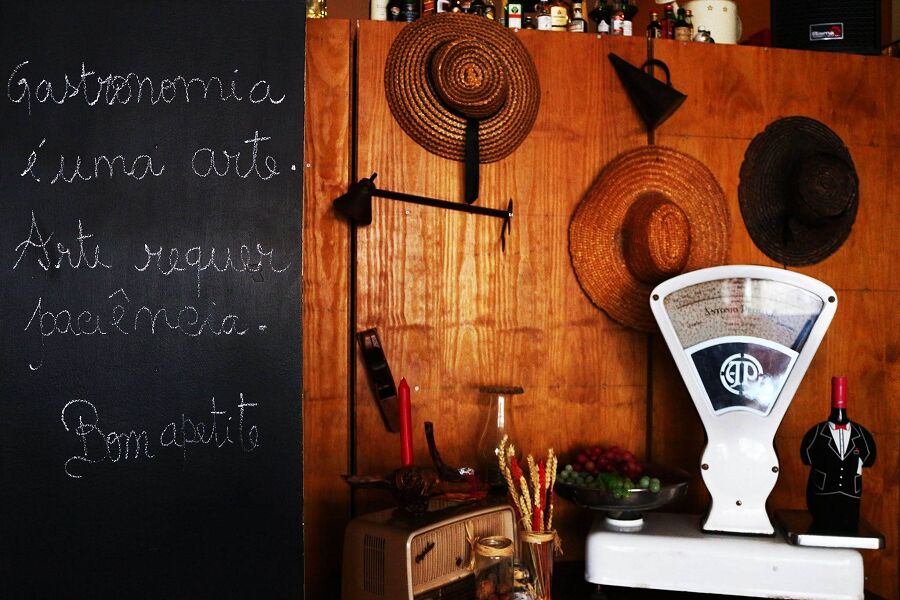 Gastronomia
é uma arte.
Arte requer
paciência.
Bom apetite
AP